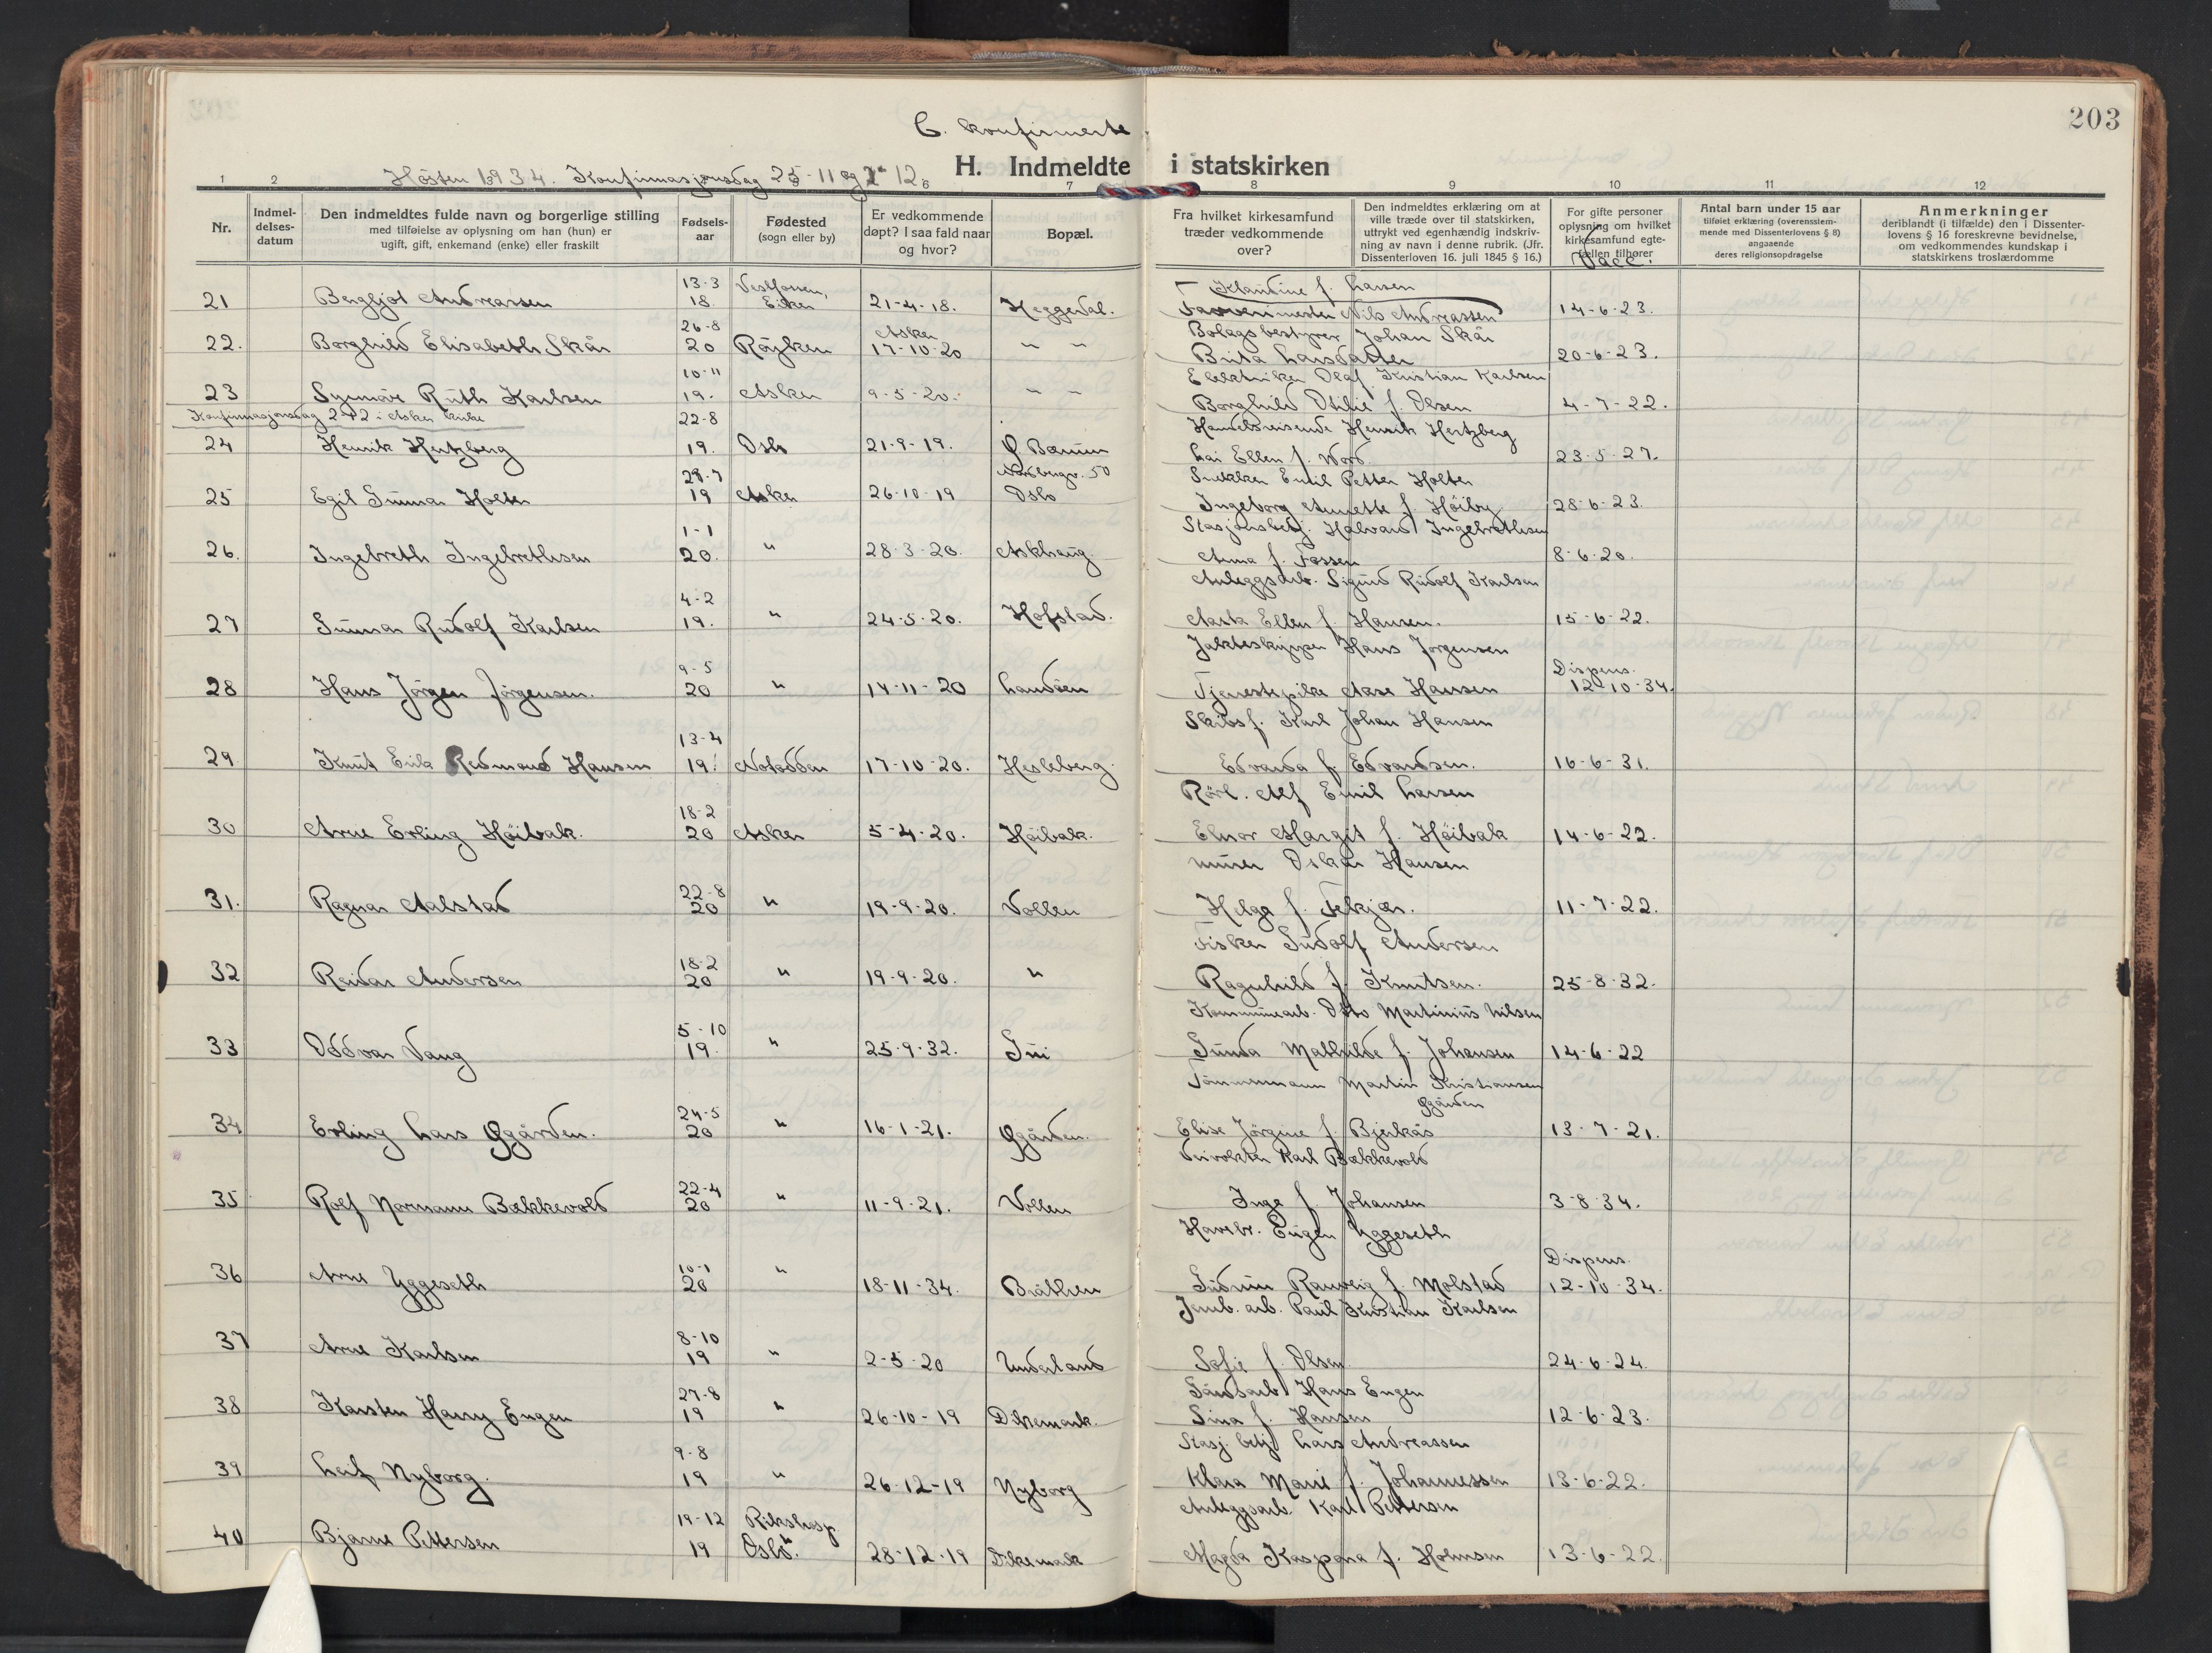 203
C. Konfirmerte
H. Indmeldte i statskirken
Hösten 1934. Konfirmasjonsdag 25-11 og 2-12.
1 2 6 7 8 9 10 11 12
Nr.
Indmel-
delses-
datum
Den indmeldtes fulde navn og borgerlige stilling
med tilføielse av oplysning om han (hun) er
ugift, gift, enkemand (enke) eller fraskilt
Fødsels-
aar
Fødested
(sogn eller by)
Er vedkommende
døpt? I saa fald naar
og hvor?
Bopæl.
Fra hvilket kirkesamfund
træder vedkommende
over?
Den indmeldtes erklæring om at
ville træde over til statskirken,
uttrykt ved egenhændig indskriv-
ning av navn i denne rubrik. (Jfr.
Dissenterloven 16. juli 1845 § 16.)
For gifte personer
oplysning om hvilket
kirkesamfund egte-
fællen tilhører
Vacc.
Antal barn under 15 aar
tilføiet erklæring (overensstem-
mende med Dissenterlovens § 8)
angaaende
deres religionsopdragelse
Anmerkninger
deriblandt (i tilfælde) den i Dissenter-
lovens § 16 foreskrevne bevidnelse,
om vedkommendes kundskap i
statskirkens troslærdomme
13-3 Vestfossen, Klaudine f. Larsen
21 Bergljot Andreassen 18. Eiker 21-4-18. Heggedal. Farvermester Nils Andreassen 14-6-23.
26-8 Asker Bolagsbestyrer Johan Skår
22. Borghild Elisabeth Skår 20 Röyken 17-10-20 " " Brita Larsdatter 20-6-23.
10-11 Elektriker Olaf Kristian Karlsen
23 Synnöve Ruth Karlsen 19. Asker 9-5-20. " " Borghild Otilie f. Olsen 4-7-22.
Konfirmasjonsdag 2-12 i Asker kirke
22-8 Handelsreisende Henrik Hertzberg
24 Henrik Hertzberg 19. Oslo 21-9-19. Ø Bærum Lai Ellen f. 23-5-27.
29-7 50 Snekker Emil Petter Holter
25 Egil Gunnar Holter 19 Asker 26-10-19 Oslo Ingeborg Annette f. Höiby 28-6-23.
1-1 Stasjonsbetj. Halvard Ingebrethsen
26. Ingebreth Ingebrethsen 20. " 28-3-20. Askhaug. Anna f. Fossen 8-6-20.
4-2 Anleggsarb. Sigurd Rudolf Karlsen
27 Gunnar Rudolf Karlsen 19. " 24-5-20. Hofstad. Aasta Ellen f. Hansen. 15-6-22.
9-5 Jakteskipper Hans Jörgensen Dispens.
28 Hans Jörgen Jörgensen. 20 " 14-11-20 Landöen Tjenestepike Aase Hansen 12-10-34.
13-4 Skibsf. Karl Johan Hansen
29 Knut Erik Redmand Hansen 19. Notodden 17-10-20. Hesleberg. Edvarda f. Edvardsen. 16-6-31.
18-2 Rörl. Alf Emil Larsen
30 Arne Erling Höibak. 20 Asker 5-4-20. Höibak. Elnor Margit f. Höibak 14-6-22.
22-8 murer Oskar Hansen
31. Ragnar Aalstad 20 " 19-9-20. Vollen Helga f. Fekjær. 11-7-22.
18-2 Fisker Gudolf Andersen
32 Reidar Andersen 20 " 19-9-20. " Ragnhild f. Knutsen. 25-8-32.
5-10 Kommunearb. Otto Martinius Nilsen
33 Oddvar Vang 19. " 25-9-32. Gui Gunda Mathilde f. Johansen 14-6-22
24-5 Tömmermann Martin Kristiansen Øgården
34 Erling Lars Øgården. 20 " 16-1-21. Øgården. Elise Jörgine f. Bjerkås 13-7-21.
22-4 Karl Bækkevold
35 Rolf Normann Bækkevold 20 " 11-9-21. Vollen Inga f. Johansen 3-8-34.
10-1 Havebr. Eugen Yggeseth Dispens.
36 Arne Yggeseth 20 " 18-11-34. Bråthen Gudrun Ranveig f. Molstad 12-10-34.
8-10 Jernb. arb. Paul Kristian Karlsen
37 Arne Karlsen 19 " 2-5-20 Underland Sofie f. Olsen 24-6-24.
27-8 Gårdsarb. Hans Engen
38 Karsten Harry Engen 19 " 26-10-19 Dikemark. Sina f. Hansen 12-6-23.
9-8 Stasj. betj. Lars Andreassen
39 Leif Nyborg. 19 " 26-12-19 Nyborg Klara Marie f. Johannessen 13-6-22.
19-12 Rikshosp. Anleggsarb. Karl Pettersen
40 Bjarne Pettersen 19 Oslo. 28-12-19 Dikemark Magda Kaspara f. Holmsen 13-6-22.